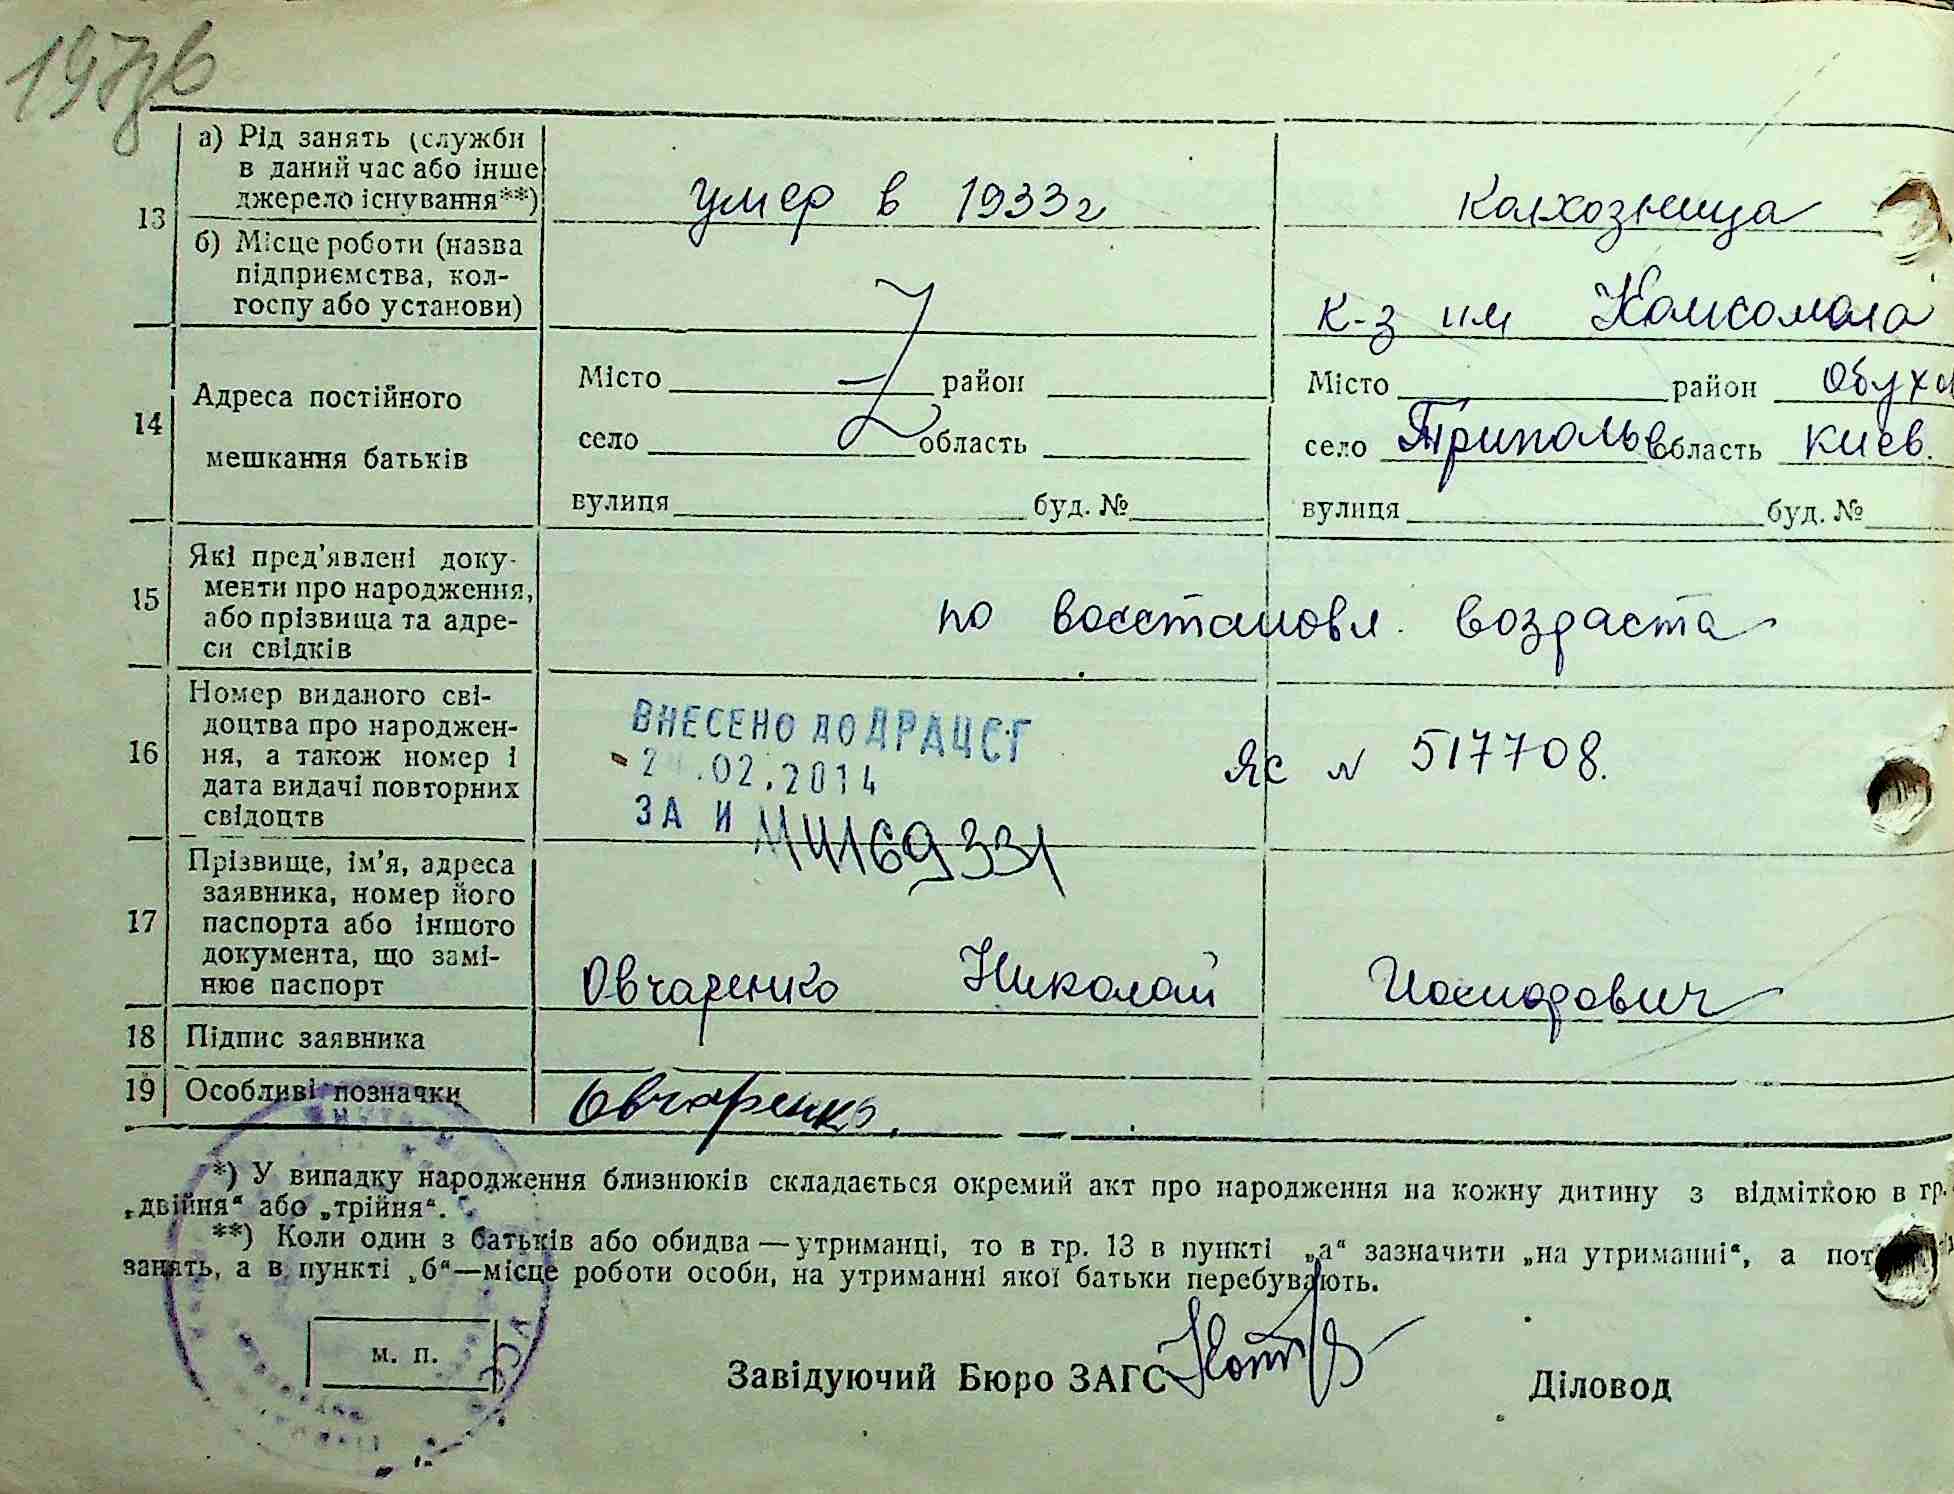 197зв
13
а) Рід занять (служби
в даний час або інше
джерело існування**)
умер в 1933г
Колхозница
б) Місце роботи (назва
підприємства, кол-
госпу або установи)
к-з им Комсомола
14
Адреса постійного
мешкання батьків
Місто район
село область
вулиця буд. №
Місто район Обух
село Триполье область Киев.
вулиця буд. №
15
Які пред'явлені доку-
менти про народження,
або прізвища та адре-
си свідків
по восстановл. возраста
16
Номер виданого сві-
доцтва про народжен-
ня, а також номер і
дата видачі повторних
свідоцтв
ВНЕСЕНО ДО ДРАЦСГ
.02.2014
ЗА И
ЯС N 517708.
17
Прізвище, ім'я, адреса
заявника, номер його
паспорта або іншого
документа, що замі-
нює паспорт
Овчаренко Николай Иосипович
18 Підпис заявника
19 Особливі позначки
Овчаренко
*) У випадку народження близнюків складається окремий акт про народження на кожну дитину з відміткою в гр.
„двійня“ або „трійня“.
**) Коли один з батьків або обидва — утриманці, то в гр. 13 в пункті „а“ зазначити „на утриманні“, а пот
занять, а в пункті „б“—місце роботи особи, на утриманні якої батьки перебувають.
м. п.
Завідуючий Бюро ЗАГС
Діловод